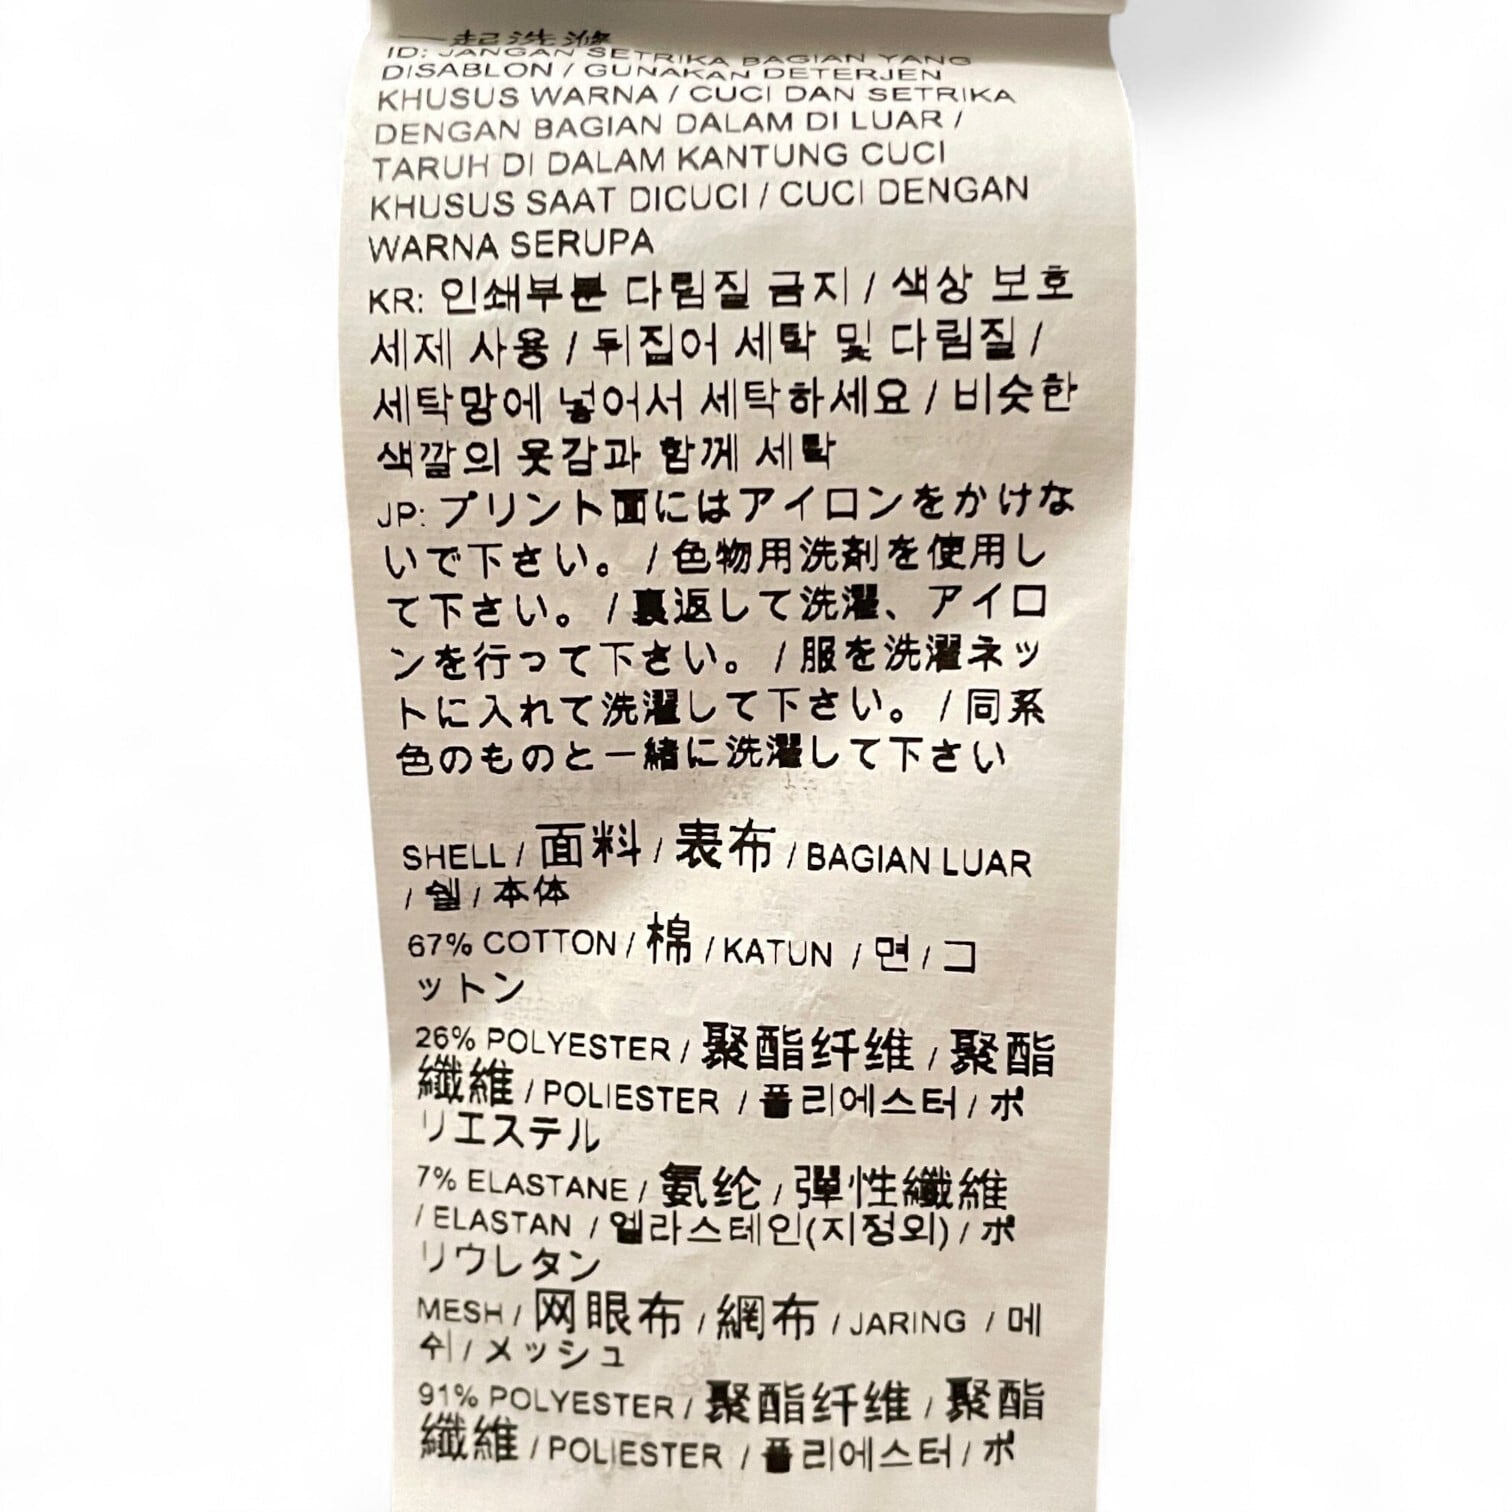 一起洗滌
ID: JANGAN SETRIKA BAGIAN YANG
DISABLON / GUNAKAN DETERJEN
KHUSUS WARNA / CUCI DAN SETRIKA
DENGAN BAGIAN DALAM DI LUAR /
TARUH DI DALAM KANTUNG CUCI
KHUSUS SAAT DICUCI / CUCI DENGAN
WARNA SERUPA
KR: 인쇄부분 다림질 금지 / 색상 보호
세제 사용 / 뒤집어 세탁 및 다림질 /
세탁망에 넣어서 세탁하세요 / 비슷한
색깔의 옷감과 함께 세탁
JP: プリント面にはアイロンをかけな
いで下さい。 / 色物用洗剤を使用し
て下さい。 / 裏返して洗濯、アイロ
ンを行って下さい。 / 服を洗濯ネッ
トに入れて洗濯して下さい。 / 同系
色のものと一緒に洗濯して下さい
SHELL / 面料 / 表布 / BAGIAN LUAR
/ 쉘 / 本体
67% COTTON / 棉 / KATUN / 면 / コ
ットン
26% POLYESTER / 聚酯纤维 / 聚酯
纖維 / POLIESTER / 폴리에스터 / ポ
リエステル
7% ELASTANE / 氨纶 / 彈性纖維
/ ELASTAN / 엘라스테인(지정외) / ポ
リウレタン
MESH / 网眼布 / 網布 / JARING / 메
쉬 / メッシュ
91% POLYESTER / 聚酯纤维 / 聚酯
纖維 / POLIESTER / 폴리에스터 / ポ